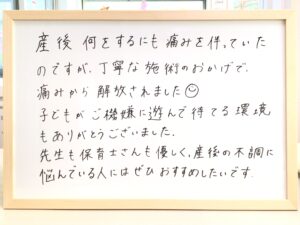 産後 何をするにも 痛みを伴っていた
のですが、丁寧な施術のおかげで、
痛みから 解放されました☺
子どもが ご機嫌に遊んで待てる環境
もありがとうございました。
先生も保育士さんも優しく、産後の不調に
悩んでいる人にはぜひおすすめしたいです。